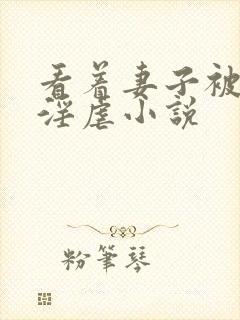 看着妻子被
淫虐小説
粉筆琴